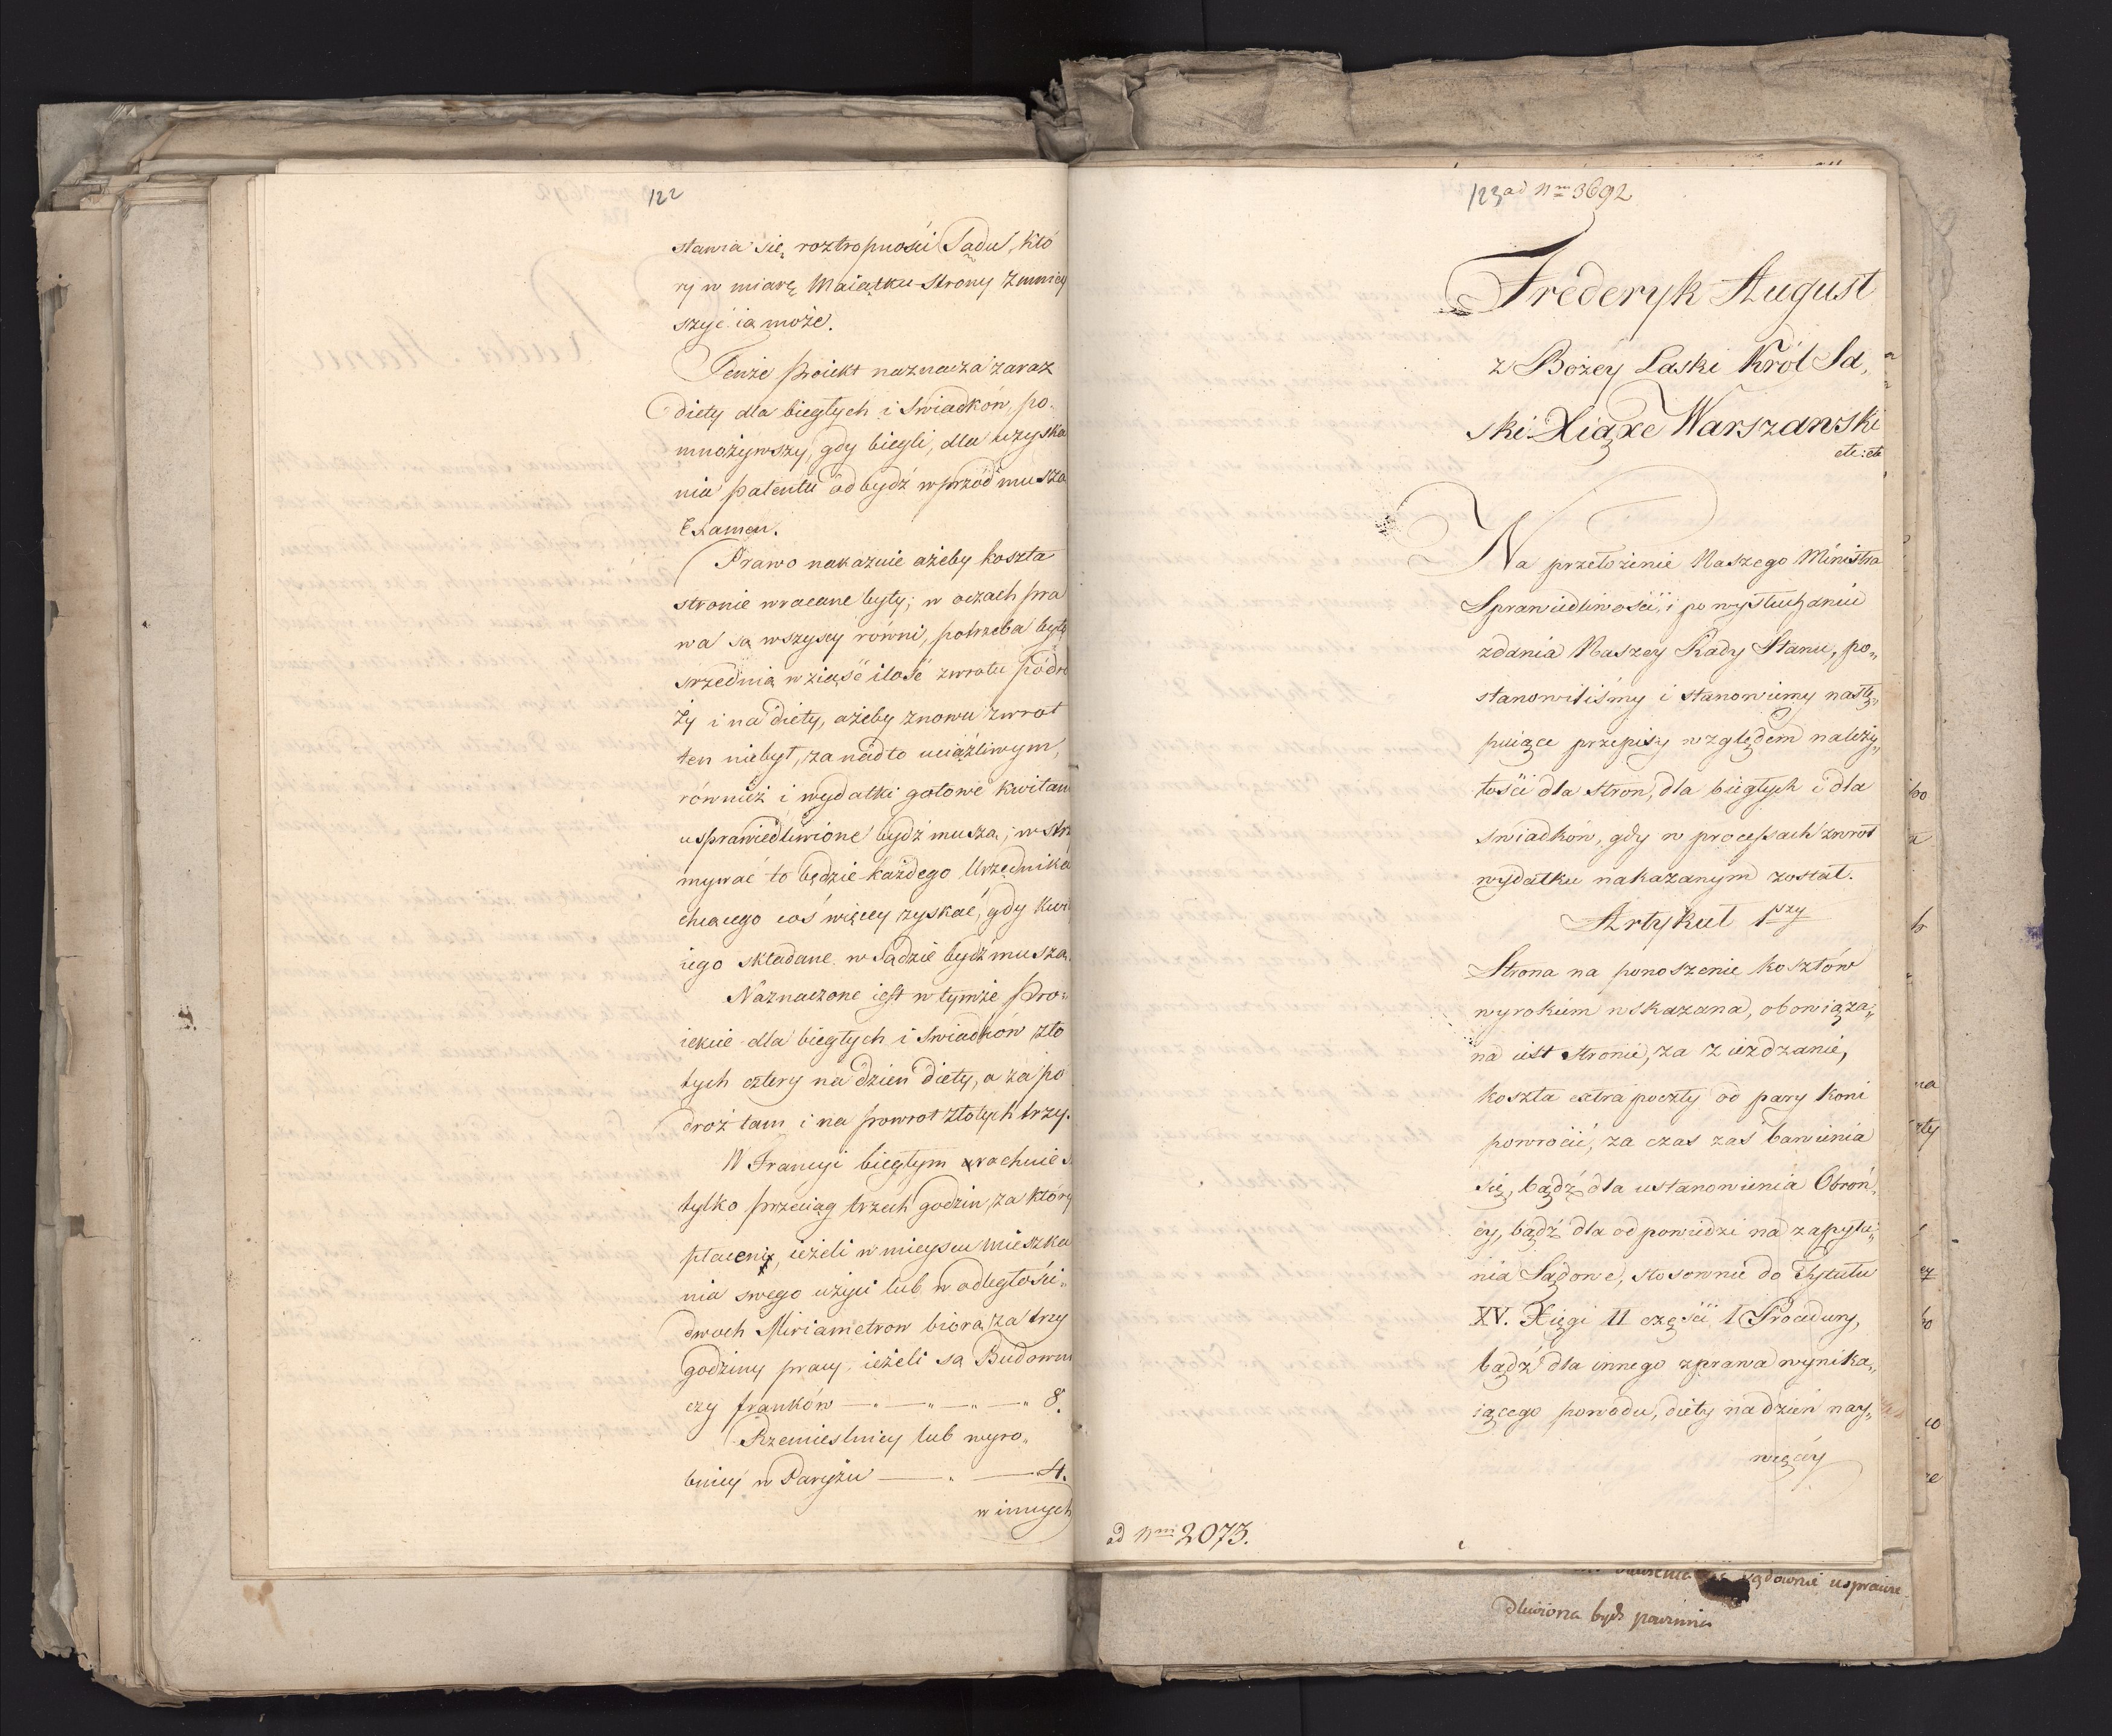 122
stawia się roztropności Sądu, któ
ry w miarę Maiątku Strony Zmniey
szyć ią może.
Tenże Proiekt naznacza zaraz
diety dla biegłych i Swiadków, po,
mnożywszy, gdy biegli, dla uzyska
nia patentu odbydź wprzód muszą
Examen.
Prawo nakazuie ażeby koszta
stronie wracane były; w oczach pra
wa są wszyscy równi, potrzeba było
srzednią wziąść ilość zwrotu podró
ży i na diety, ażeby znowu zwrot
ten niebył, za nadto uciążliwym,
również i wydatki gotowe kwitam
usprawiedliwione bydź muszą; wstrz
mywać to będzie każdego Urzędnika
chcącego coś więcey zyskać, gdy kwi
iego składane w Sądzie bydź muszą.
Naznaczone iest w tymże Pro„
iekcie dla biegłych i Swiadków zło
tych cztery na dzień diety, a za po
droż tam i na powrot złotych trzy.
W Francyi biegłym rachuie s
tylko przeciąg trzech godzin, za który
płaceni, ieżeli w mieyscu mieszka
nia swego użyci lub w odległości„
dwoch Miriametrow biorą za trzy
godziny pracy, ieżeli są Budowni
czy franków — „ — „ — „ — „ 8.
Rzemieslnicy lub wyro„
bnicy w Paryżu — „ — 4.
w innych
123 ad Nm 3692
Frederyk August
z Bożey Laski Król Sa,
ski Xiąże Warszawski
etc: etc
Na przełożenie Naszego Ministra
Sprawiedliwości, i po wysłuchaniu
zdania Naszey Rady Stanu, po„
stanowiliśmy i stanowiemy nastę„
puiące przepisy względem należy„
tości dla stron, dla biegłych i dla
swiadków, gdy w processach zwrot
wydatku nakazanym został.
Artykuł 1szy
Strona na ponoszenie kosztów
wyrokiem wskazana, obowiąza„
na iest Stronie, za Zieżdzanie,
koszta extra poczty od pary Koni
powrócić, za czas zaś bawienia
się, bądź dla ustanowienia Obroń„
cy, bądź dla odpowiedzi na zapyta„
nia Sądowe, stosownie do Tytułu
XV. Xięgi II części I Procedury,
bądź dla innego z prawa wynika„
iącego powodu, diety na dzień nay„
więcéy
ad Nm 2073.
sądownie usprawie
dliwiona bydź powinna